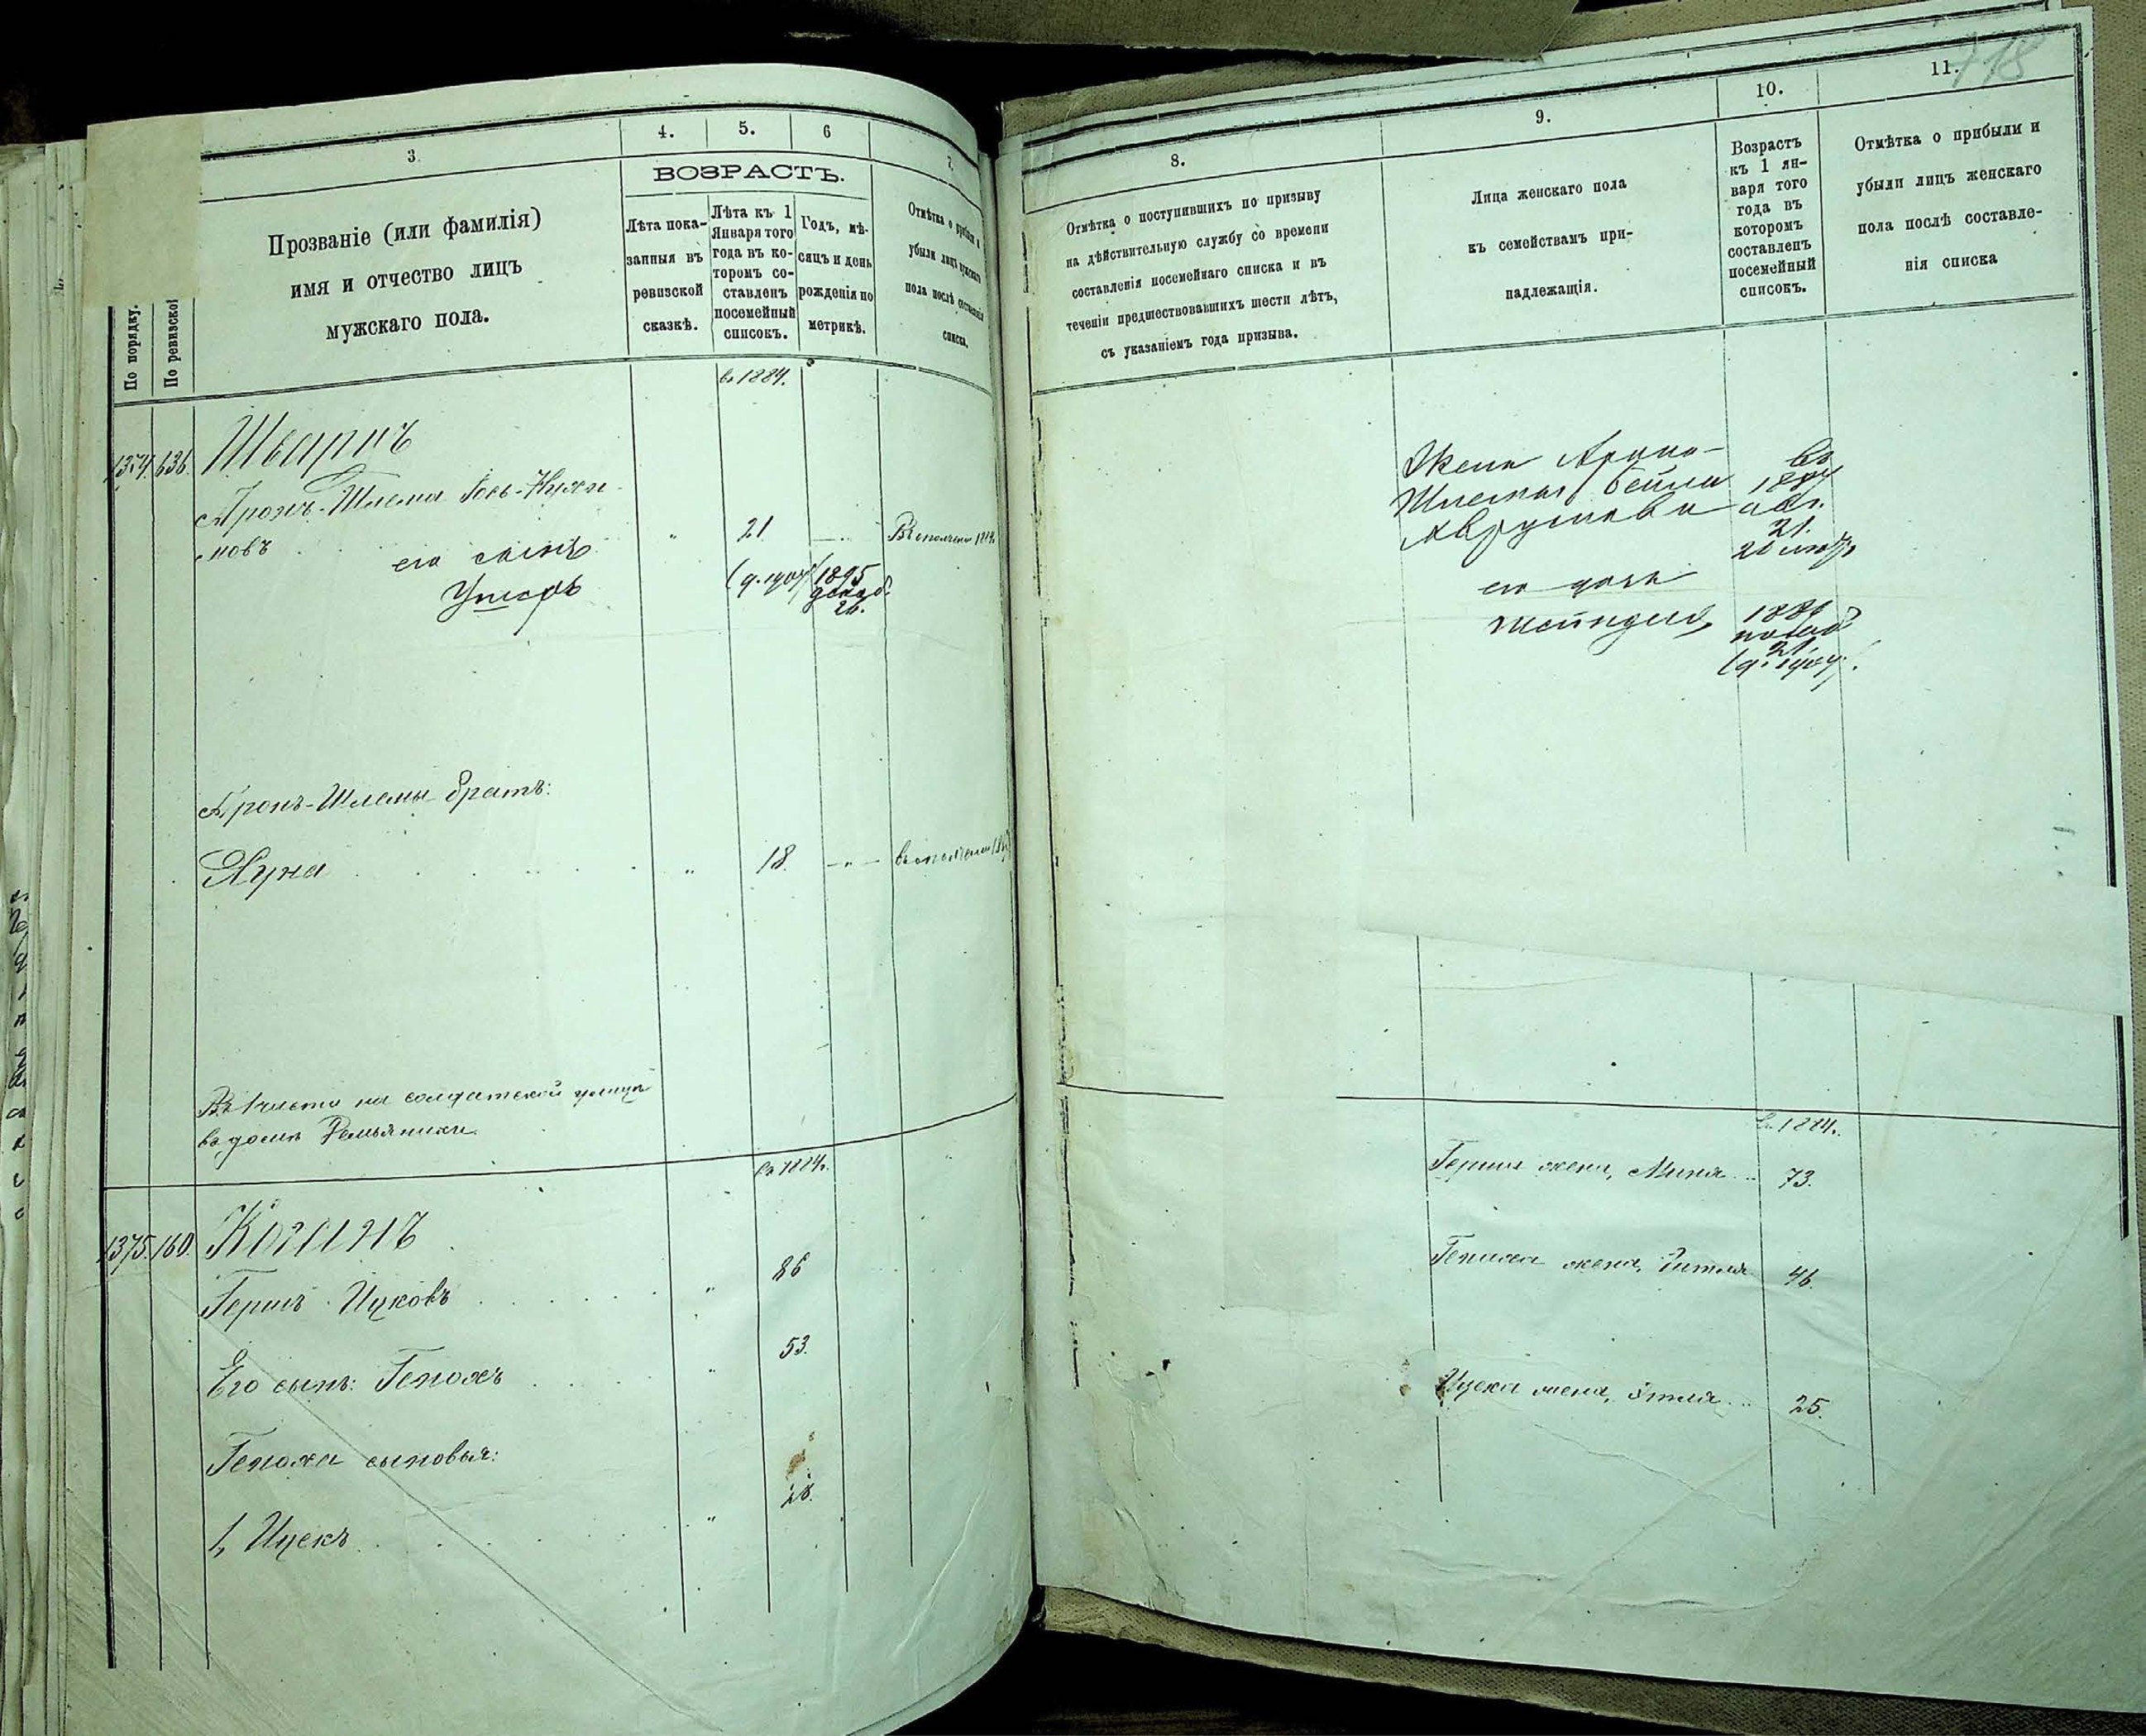 3
4.
5.
6
7.
ВОЗРАСТЪ.
По порядку.
По ревизской
Прозваніе (или фамилія)
имя и отчество лицъ
мужскаго пола.
Лѣта пока-
занныя въ
ревизской
сказкѣ.
Лѣта къ 1
Января того
года въ ко-
торомъ со-
ставленъ
посемейный
списокъ.
Годъ, мѣ-
сяцъ и день
рожденія по
метрикѣ.
Отмѣтка о прибыли и
убыли лицъ мужскаго
пола послѣ составленія
списка.
въ 1884.
1374. 636.
Шварцъ
Аронъ-Шлема Іось-Нухи-
мовъ 21
его сынъ
(д. 1904) 1895
26.
Аронъ-Шлемы братъ:
18.
на солдатской улицѣ
въ домѣ
въ 1884.
1375. 160. Коганъ
Гершъ Ицковъ 86
Его сынъ: Генохъ 53.
Геноха сыновья:
1, Ицекъ 28.
118
8.
9.
10.
11.
Отмѣтка о поступившихъ по призыву
на дѣйствительную службу со времени
составленія посемейнаго списка и въ
теченіи предшествовавшихъ шести лѣтъ,
съ указаніемъ года призыва.
Лица женскаго пола
къ семействамъ при-
надлежащія.
Возрастъ
къ 1 ян-
варя того
года въ
которомъ
составленъ
посемейный
списокъ.
Отмѣтка о прибыли и
убыли лицъ женскаго
пола послѣ составле-
нія списка
Жена Арона-
Шлемы Бейла
21.
его дочь
Шейндля,
21.
(д. 1904).
въ 1884.
Герша жена, Миня 73.
Геноха жена, 46.
Ицека жена, Этля 25.